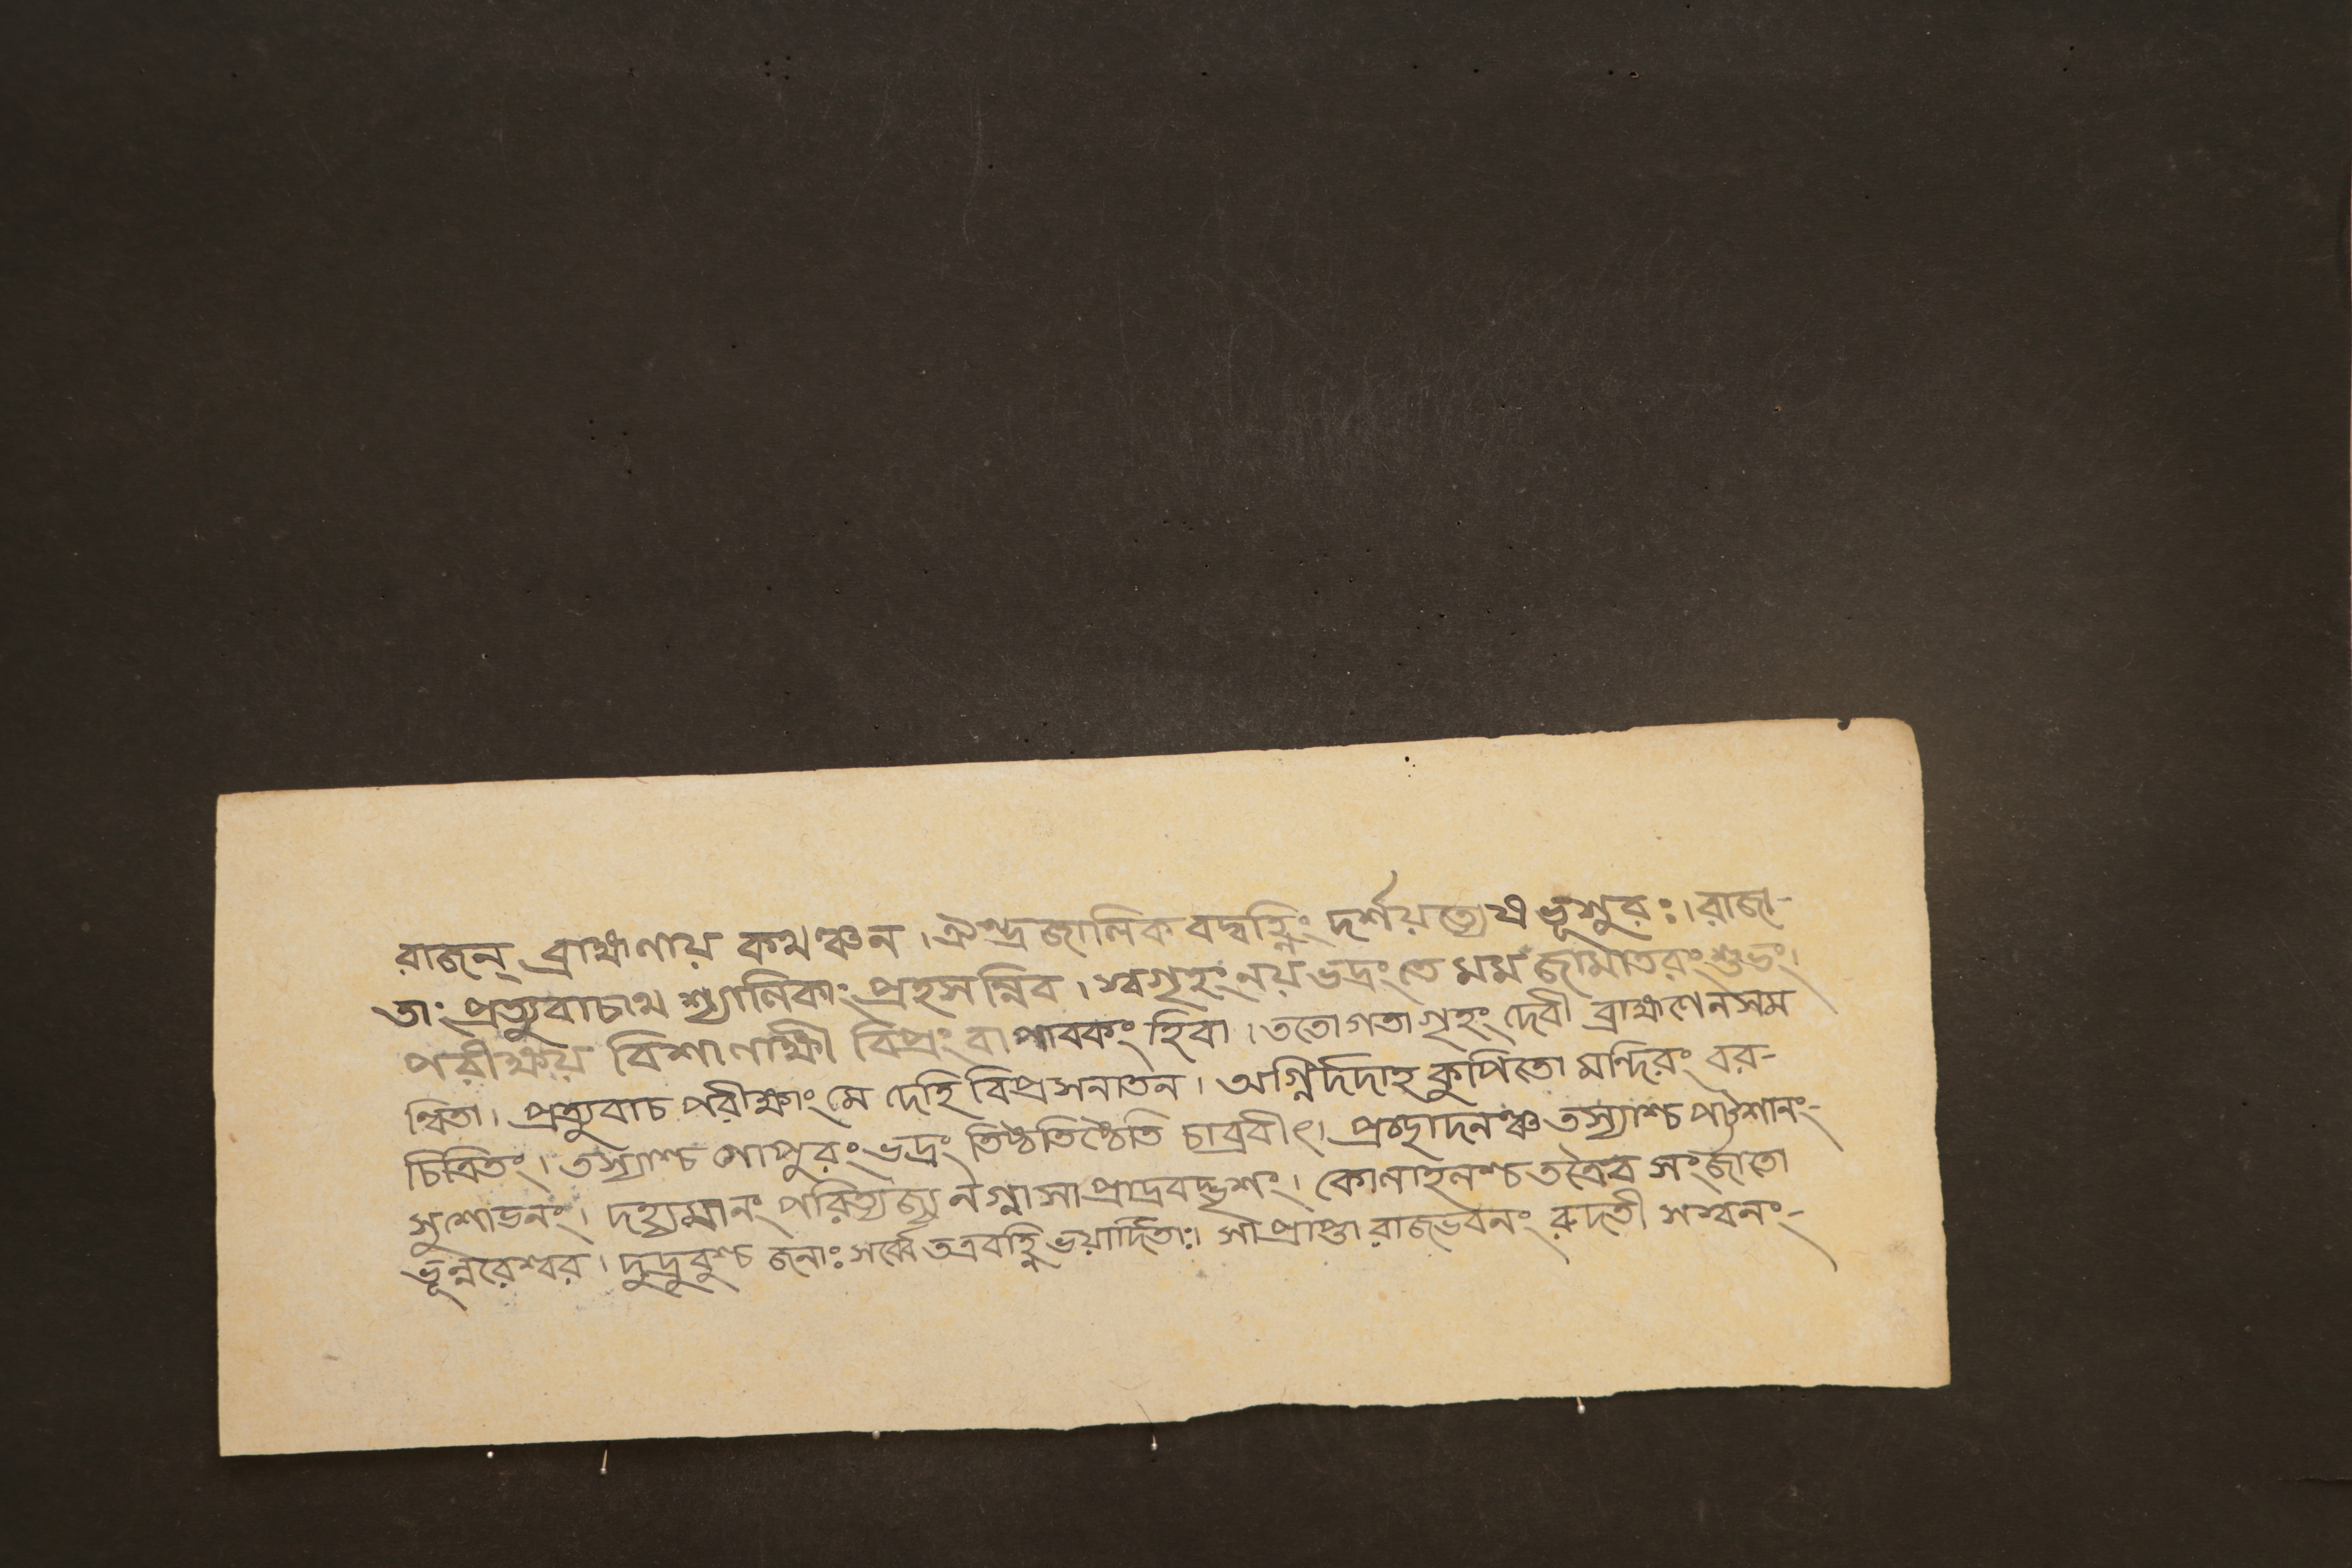 রাজন্ ব্রাহ্মণায় কথঞ্চন । ঐন্দ্রজালিকবদ্বহ্নিং দর্শয়ত্যেষ ভূশুরঃ । রাজা-
তাং প্রত্যুবাচাথ শ্যালিকাং প্রহসন্নিব । স্বগৃহং নয় ভদ্রং তে মম জামাতরং শুভং ।
পরীক্ষয় বিশালাক্ষী বিপ্রং বা পাবকং হিবা । ততো গতা গৃহং দেবী ব্রাহ্মণেন সম
ন্বিতা । প্রত্যুবাচ পরীক্ষাং মে দেহি বিপ্র সনাতন । অগ্নির্দদাহ কুপিতো মন্দিরং বর-
চিত্রিতং । তস্যাশ্চ গোপুরং ভদ্রং তিষ্ঠতিষ্ঠেতি চাব্রবীৎ । প্রচ্ছাদনঞ্চ তস্যাশ্চ
সুশোভনং । দহ্যমানং পরিত্যজ্য নগ্না সা প্রাদ্রবদ্ভৃশং । কোলাহলশ্চ তত্রৈব সংজাতো
ভূন্নরেশ্বর । দুদ্রুবুশ্চ জনাঃ সর্ব্বে তত্র বহ্নিভয়ার্দিতাঃ । সা প্রাপ্তা রাজভবনং রুদতী সস্বনং-